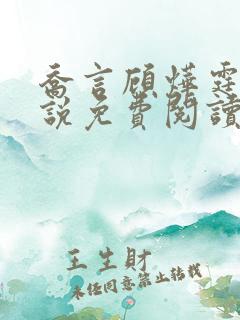 喬言顧燁霆
說免費閱讀
王生財
未經同意禁止轉載